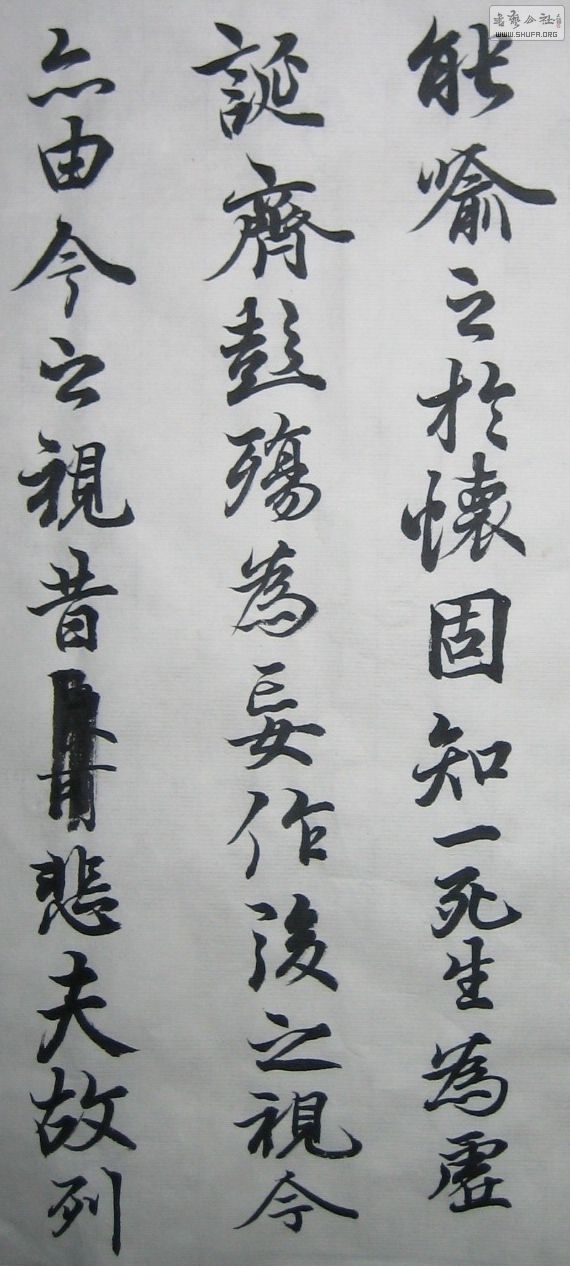 能喻之於懷固知一死生為虛
誕齊彭殤為妄作後之視今
亦由今之視昔悲夫故列
WWW.SHUFA.ORG